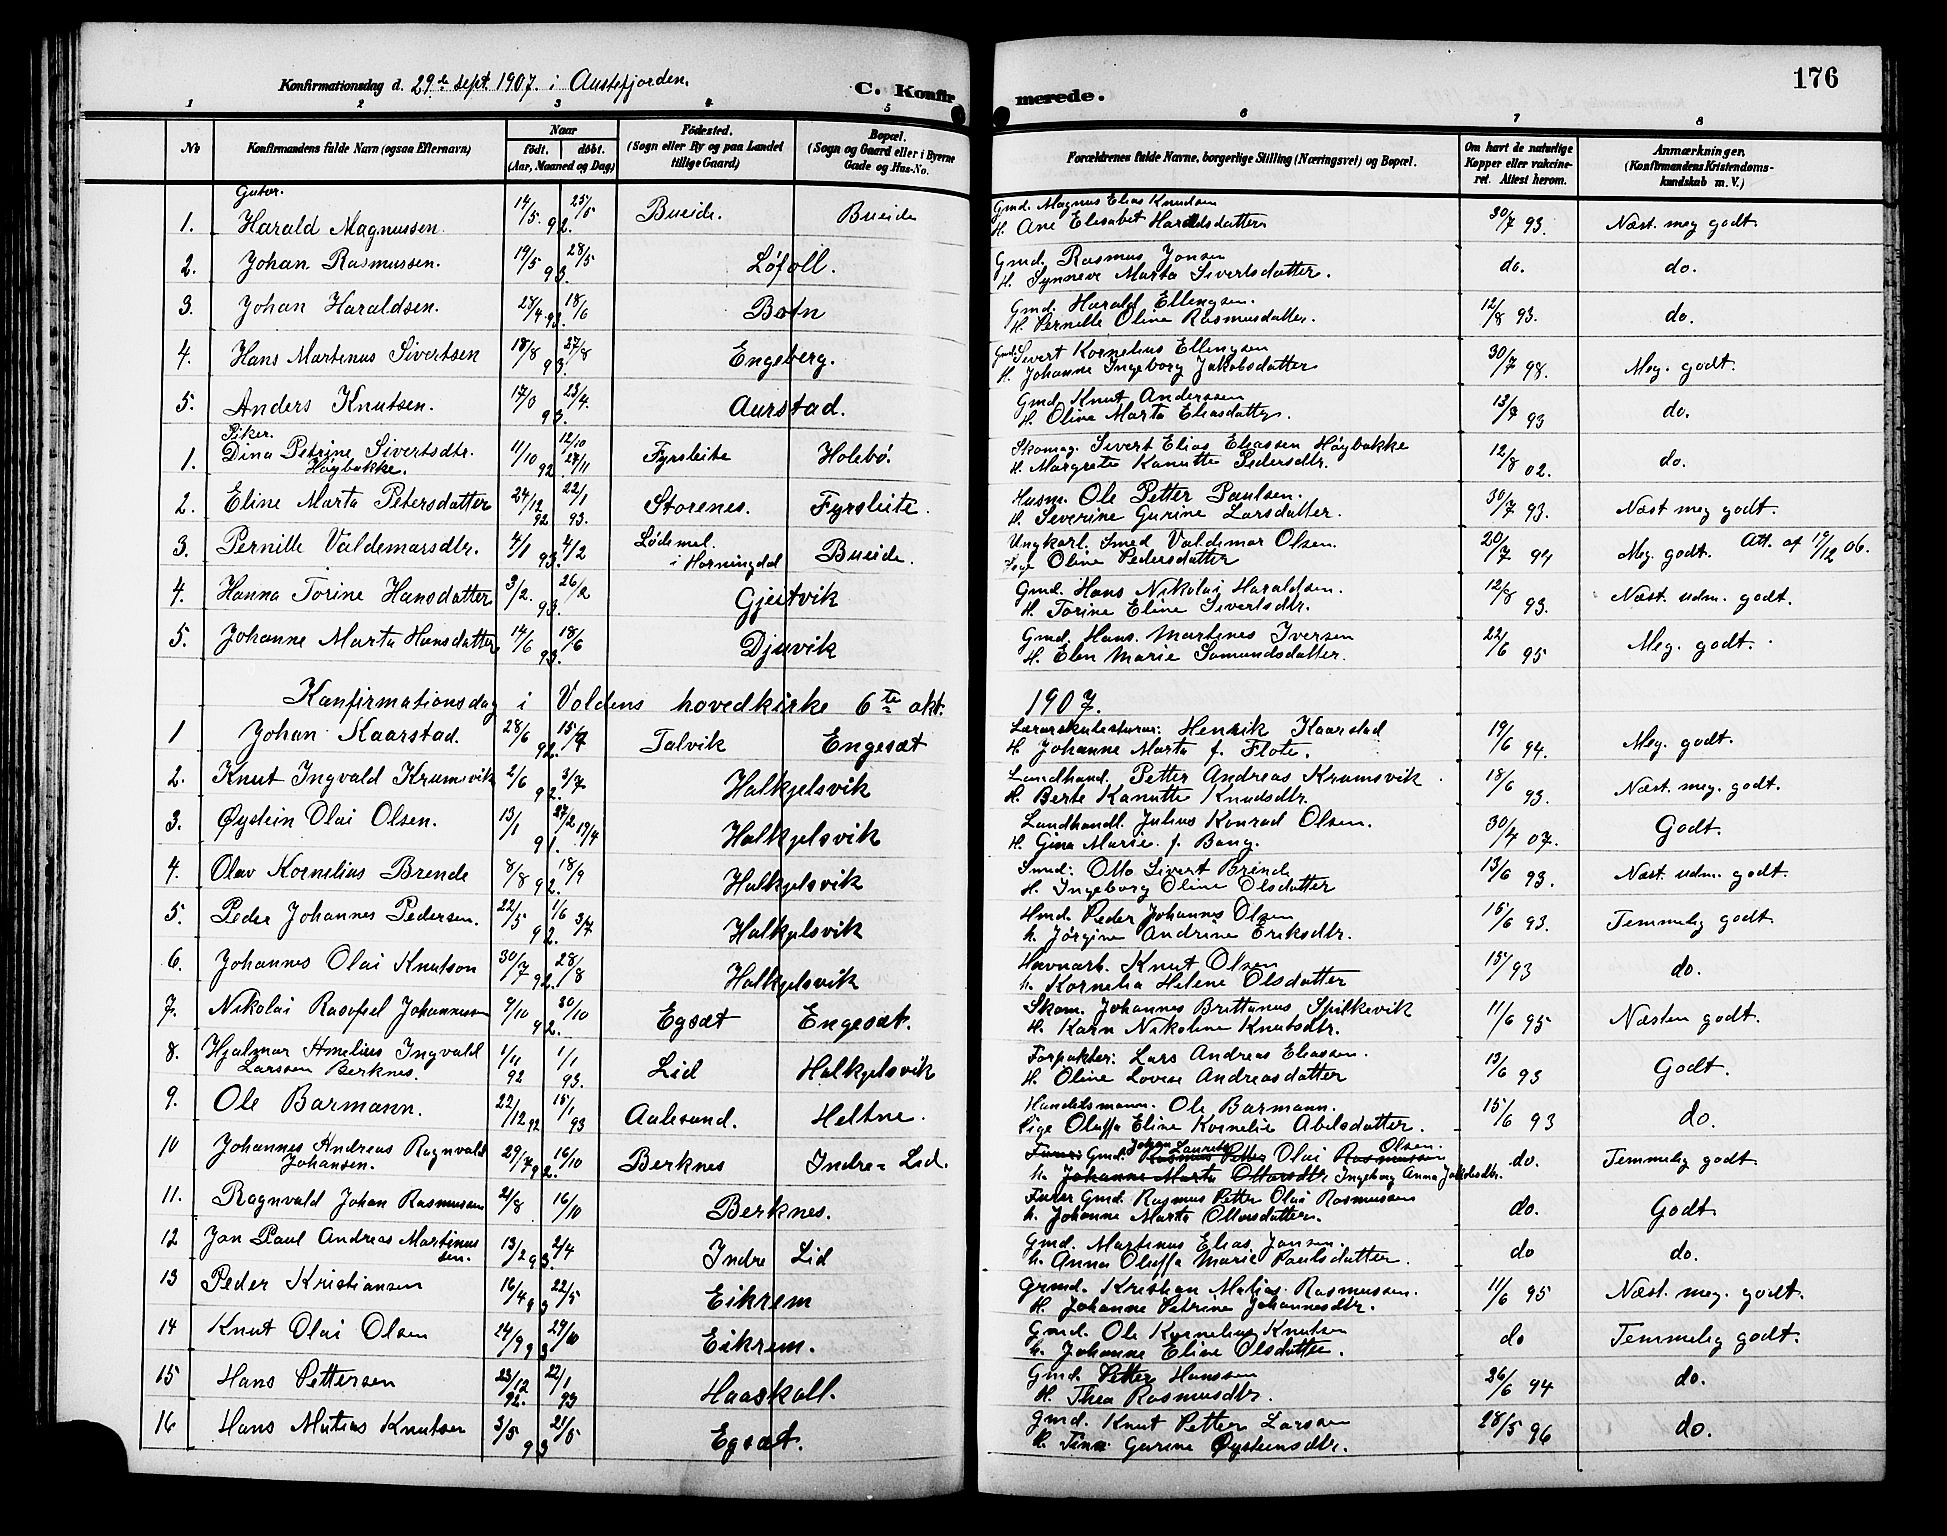 176
Konfirmationsdag d. 29de sept. 1907. i Austefjorden.
C. Konfirmerede.
1 2 3 4 5 6 7 8
No
Konfirmandens fulde Navn (ogsaa Efternavn)
Naar
Født. døbt.
(Aar, Maaned og Dag)
Fødested.
(Sogn eller By og paa Landet
tillige Gaard)
Bopæl.
(Sogn og Gaard eller i Byerne
Gade og Hus-No.
Forældrenes fulde Navne, borgerlige Stilling (Næringsvei) og Bopæl.
Om havt de naturlige
Kopper eller vakcine-
ret. Attest herom.
Anmærkninger.
(Konfirmandens Kristendoms-
kundskab m. V.)
Gutar.
1. Harald Magnussen 14/5. 92. 25/5 Bueide. Bueide
Gmd. Magnus Elias Knudsen
H. Ane Elisabet Haraldsdatter 30/7 93. Næst. meg godt.
2. Johan Rasmussen. 19/5 93. 28/5 Løfoll.
Gmd. Rasmus Jonsen
H. Synneve Marta Sivertsdatter. do. do.
3. Johan Haraldsen. 28/4 93. 18/6 Botn
Gmd. Harald Ellingsen.
H. Pernille Oline Rasmusdatter. 12/8 93. do.
4. Hans Martinus Sivertsen 18/8 93. 27/8 Engeberg.
Gmd. Sivert Kornelius Ellingsen
H. Johanne Ingeborg Jakobsdatter 30/7 98. Meg. godt.
5. Anders Knutsen. 17/3 93. 23/4. Aurstad.
Gmd. Knut Anderssen
H. Oline Marta Eliasdatter. 13/7 93 do.
Piker.
1. Dina Petrine Sivertsdtr. Høybakke. 11/10 92 12/10 27/11 Fyrsleite Holebø.
Skomag. Sivert Elias Eliassen Høybakke
H. Margrete Kanutte Pedersdtr. 12/8 02. do.
2. Eline Marta Petersdatter 24/12 92 22/1 93. Storenes. Fyrsleite.
Husm. Ole Petter Paulsen.
H. Severine Gurine Larsdatter. 30/7 93. Næst meg godt.
3. Pernille Valdemarsdtr. 4/1 93. 4/2 Lødemel i Horningdal Bueide.
Ungkarl. Smed Valdemar Olsen.
Pige Oline Pedersdatter 20/7 94 Meg. godt. Att. af 19/12 06.
4. Hanna Torine Hansdatter 3/2. 93. 26/2 Gjeitvik
Gmd. Hans Nikolai Haraldsen.
H. Torine Eline Sivertsdtr. 12/8 93. Næst. udm. godt.
5. Johanne Marta Hansdatter 14/6 93. 18/6 Djuvik
Gmd. Hans Martines Iversen
H. Elen Marie Samundsdatter. 22/6 95 Meg. godt.
Konfirmationsdag i Voldens hovedkirke 6te okt. 1907.
1 Johan Kaarstad. 28/6 92. 15/7 Talvik Engesæt
Lærerskolestyrer: Henrik Kaarstad
H. Johanne Marta f. Flote. 19/6 94. Meg. godt.
2. Knut Ingvald Krumsvik 2/6 92. 3/7 Halkjelsvik
Landhand. Petter Andreas Krumsvik
H. Berte Kanutte Knudsdtr. 18/6 93. Næst. meg. godt.
3. Øystein Olai Olsen. 13/1 91. 27/2 19/4 Halkjelsvik
Landhandl. Julius Konrad Olsen.
H. Gina Marie f. Bang. 30/4 07. Godt.
4. Olav Kornelius Brende 8/8 92. 18/9 Halkjelsvik
Smed: Otto Sivert Brende
H. Ingeborg Oline Olsdatter 13/6 93. Næst. udm. godt.
5. Peder Johannes Pedersen. 22/5 92. 1/6 3/7 Halkjelsvik
Hmd. Peder Johannes Olsen
h. Jørgine Andrine Eriksdtr. 15/6 93. Temmelig godt.
6. Johannes Olai Knutson 30/7 92. 28/8 Halkjelsvik
Havnarb. Knut Olsen
h. Kornelia Helene Olsdatter 15/ 93 do.
7. Nikolai Johannessen 9/10 92. 30/10 Egsæt Engesæt.
Skom. Johannes Brittanus Spilkevik
H. Karn Nikoline Knutsdtr. 11/6 95 Næsten godt.
8. Hjalmar Amelius Ingvald Larssen Berknes. 1/11 92 1/1 93. Lid Halkjelsvik
Forpakter: Lars Andreas Eliassen.
H. Oline Lovise Andreasdatter 13/6 93 Godt.
9. Ole Barmann. 22/12 92 15/1 93 Aalesund. Heltne.
Handelsmann. Ole Barmann.
Pige Oluffa Eline Kornelie Abelsdatter. 15/6 93 do.
10 Johannes Andreas Ragnvald Johansen. 29/7 92. 16/10 Berknes Indre-Lid.
Gmd. Johan Lauritz Rasmus Petter Olai Rasmussen Olsen.
h. Johanne Marta Ottarsdtr Ingeborg Anna Jakobsdtr. do. Temmelig godt.
11. Ragnvald Johan Rasmussen 2/8 16/10 Berknes.
Furer Gmd. Rasmus Petter Olai Rasmussen
h. Johanne Marta Ottarsdatter. do. Godt.
12 Jon Paul Andreas Martinussen. 13/2 93. 2/4 Indre Lid
Gmd. Martinus Elias Jonsen.
h. Anna Oluffa Marie Paulsdatter. do do.
13 Peder Kristiansen 16/4 93 22/5 Eikrem
Grmd. Kristian Matias Rasmussen.
H. Johanne Petrine Johannesdtr. 11/6 95 Næst. meg. godt.
14 Knut Olai Olsen 24/9 93 29/10 Eikrem.
Gmd. Ole Kornelius Knutsen
h. Johanne Eline Olsdatter. do Temmelig godt.
15 Hans Pettersen 23/12 92. 22/1 93 Haaskoll.
Gmd. Petter Hanssen
H. Thea Rasmusdtr. 26/6 94 do.
16 Hans Matias Knutsen 3/5 93 21/5 Egsæt.
Gmd. Knut Petter Larssen
H. Tina Gurine Øysteinsdtr. 28/5 96 do.